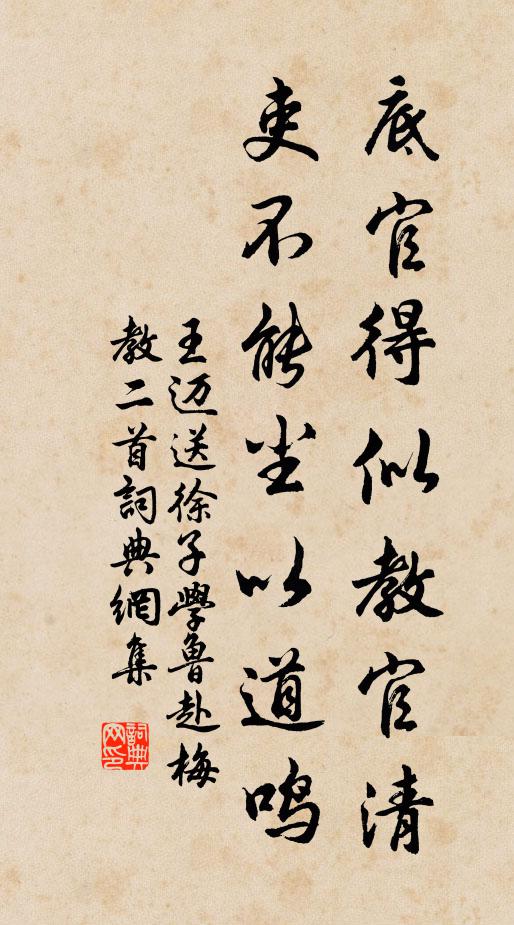 底官得似教官清
吏不能尘以道鸣
王迈送徐子學魯赴梅
教二首詞典網集
詞典
网印